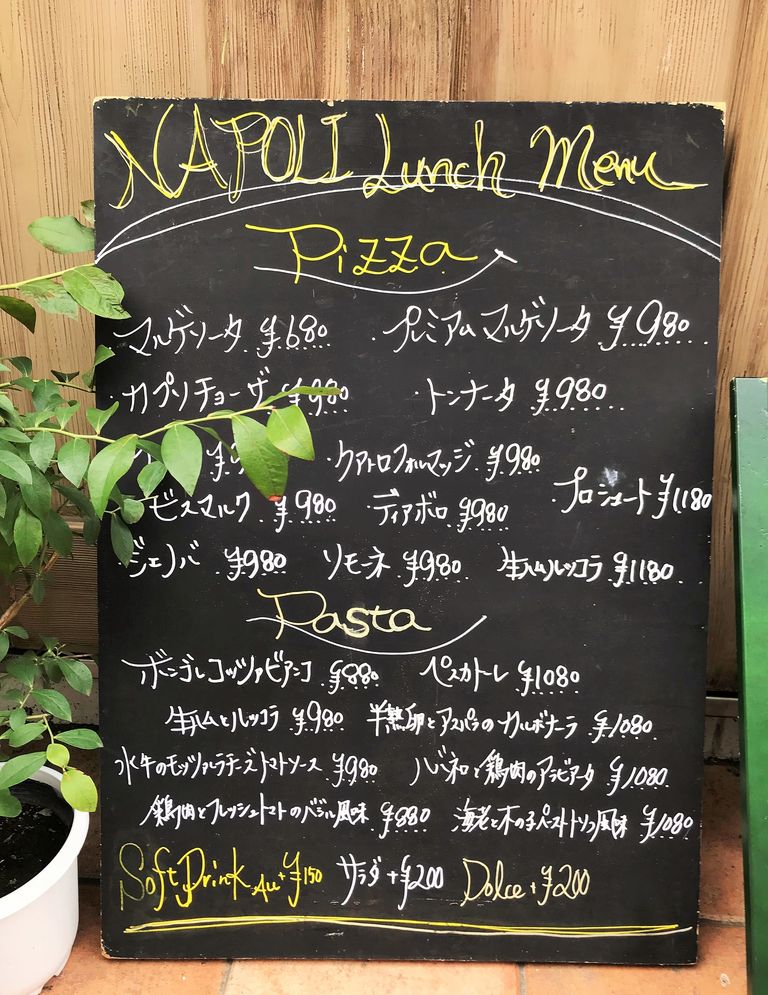 NAPOLI Lunch Menu
Pizza
マルゲリータ ¥680 ・プレミアムマルゲリータ ¥980
・カプリチョーザ ¥980 ・トンナータ ¥980
・クアトロフォルマッジ ¥980
ビスマルク ¥980 ディアボロ ¥980 ・プロシュート ¥1180
ジェノバ ¥980 リモーネ ¥980 生ハムルッコラ ¥1180
Pasta
ボンゴレコッツァビアンコ ¥880 ペスカトーレ ¥1080
生ハムとルッコラ ¥980 半熟卵とアスパラのカルボナーラ ¥1080
水牛のモッツァレラチーズトマトソース ¥980 ハバネロと鶏肉のアラビアータ ¥1080
鶏肉とフレッシュトマトのバジル風味 ¥880 海老と木の子ペースト トリュフ風味 ¥1080
Soft Drink All +¥150 サラダ +¥200 Dolce +¥200